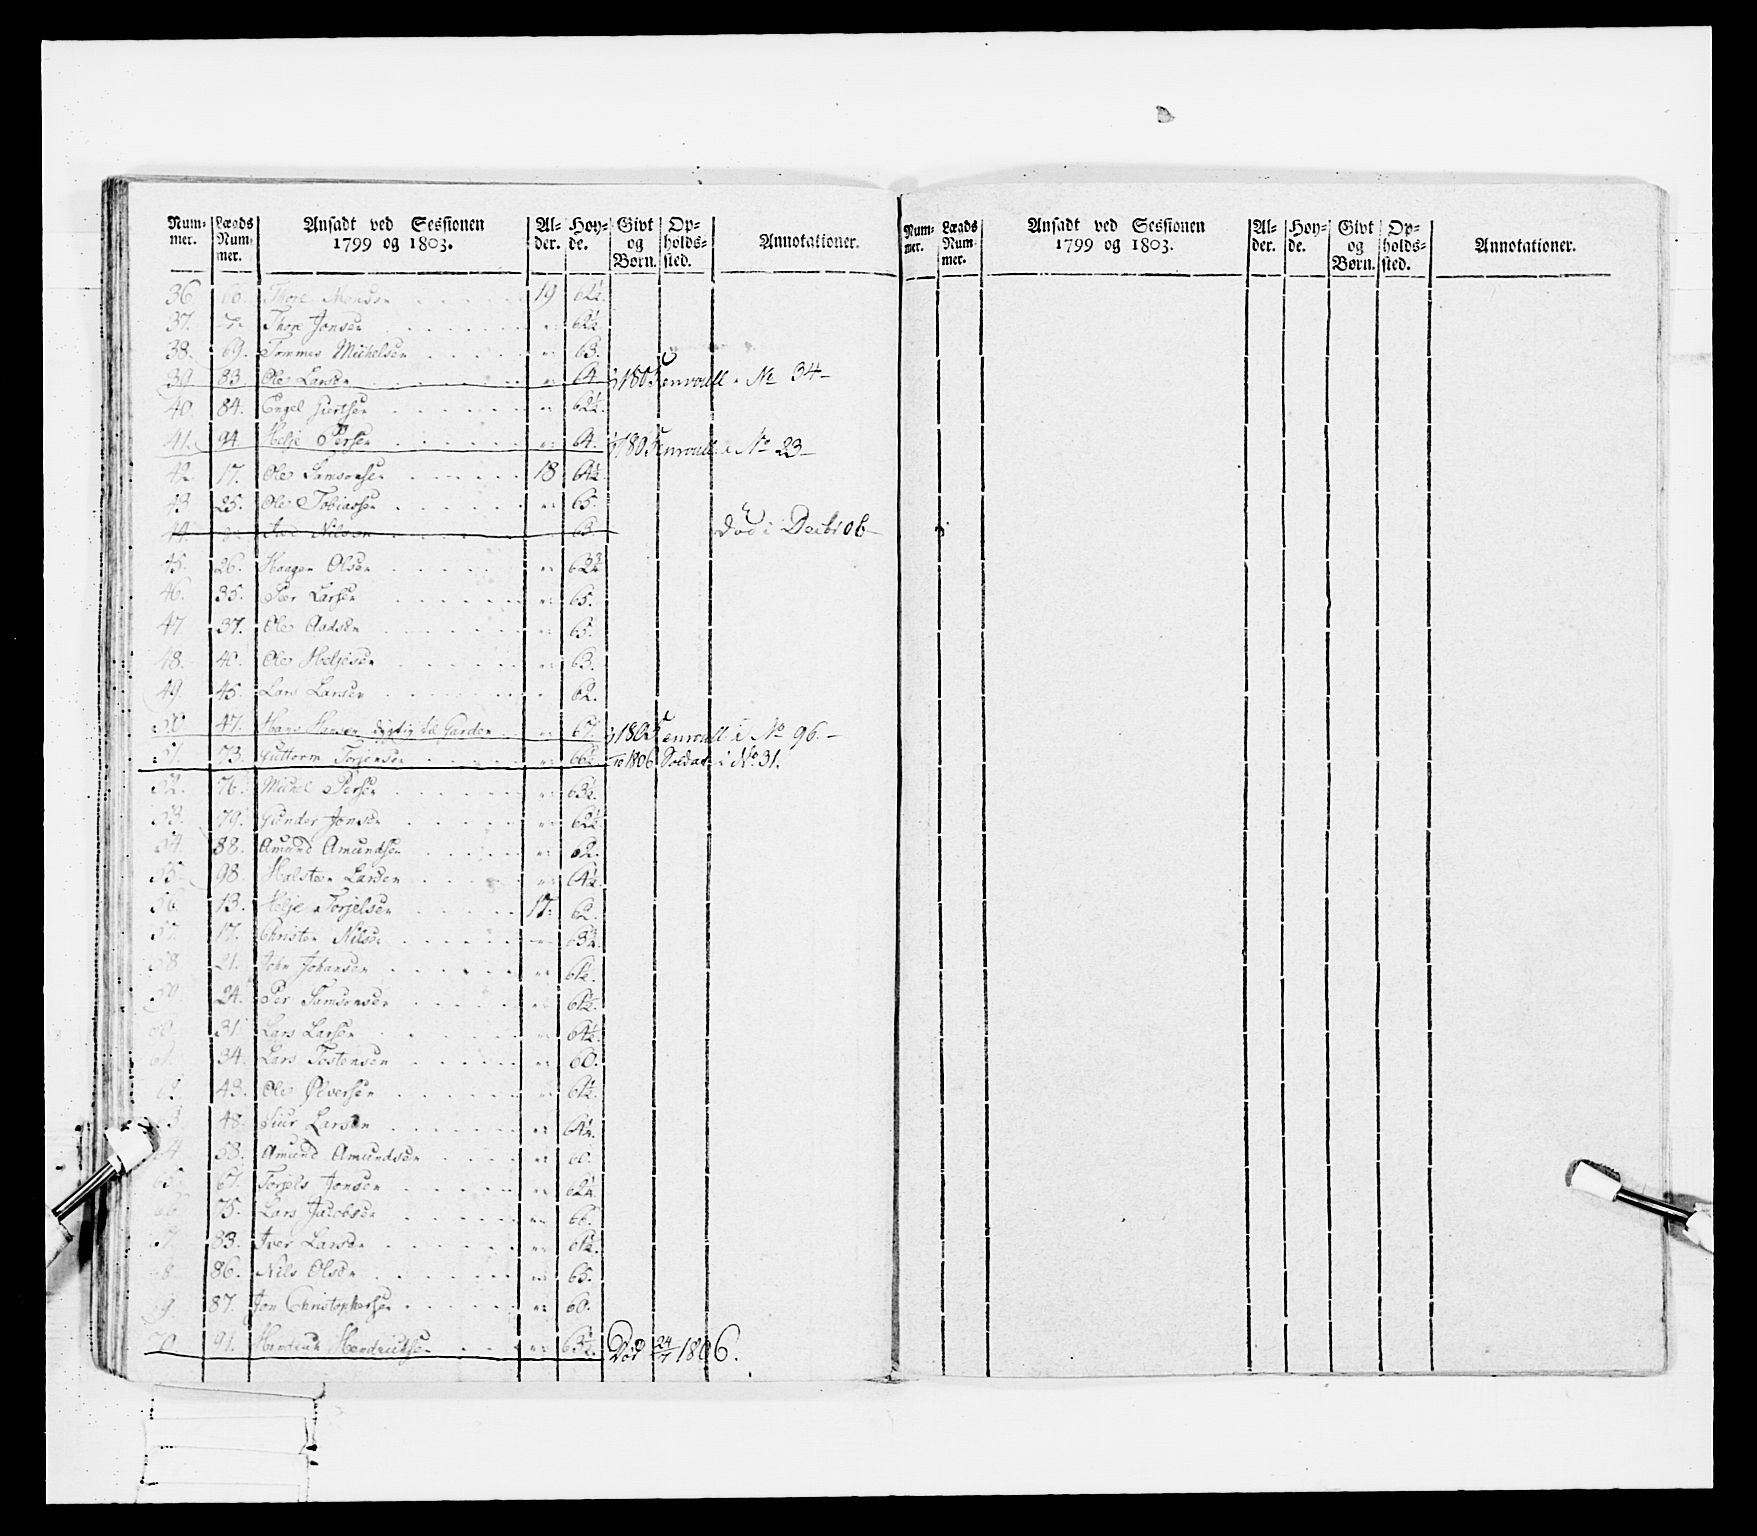 Num- mer. Lægds Num- mer. Ansadt ved Sessionen 1799 og 1803. Al- der. Høy- de. Givt og Børn. Op- holds- sted. Annotationer.
36. Thore 19 62½.
37. Thore Jonsen " 62½.
38. 69. Tommes Michelsen " 63.
39 83. Ole Larsen " 64 1805 enroull. i No 34
40. 84. Engel Giertsen " 62½.
41. 94. Helje Persen " 64. 1805 enroull. i No 23
42. 17. Ole Samsonsen 18 64½
43 25. Ole Tobiassen " 65.
44. Nilsen 63. Død i Decbr 06
45. 26. Haagen Olsen " 62¾
46. 35. Siur Larsen " 65.
47 37. Ole Aadsen " 65.
48. 40. Ole Heljesen " 63.
49 45. Lars Larsen " 62.
50 47. Hans Hansen dygtig til Garden " 67. 1805 enroull i No 96.
51. 73. Guttorm Torjersen " 66½ 1806 Soldat i No. 31.
52. 76. Michel Persen " 63½.
53. 79. Gunder Jonsen " 62½
54. 88. Amund Amundsen " 62.
55 98. Halsteen Larsen " 64½.
56 13. Helje Torjelsen 17. 62.
57. 17. Christen Nilsen " 63¾.
58 21. John Johansen " 61½.
59. 24. Per Samsonsen " 61½.
60. 31. Lars Larsen " 64½.
61. 34. Lars Tostensen " 60.
62. 43. Ole Ølversen " 61½.
63 48. Siur Larsen " 64½.
64. 58. Amund Amundsen " 60.
65. 67. Torjels Jonsen " 62½.
66 75. Lars Jacobsen " 66.
67 83. Iver Larsen " 61½.
68 86. Nils Olsen " 65.
69. 87. Jon Christophersen " 60.
70 91. Hendrich Hendrichsen " 63½. Død 24/7 1806.
Num- mer. Lægds Num- mer. Ansadt ved Sessionen 1799 og 1803. Al- der. Høy- de. Givt og Børn. Op- holds- sted. Annotationer.